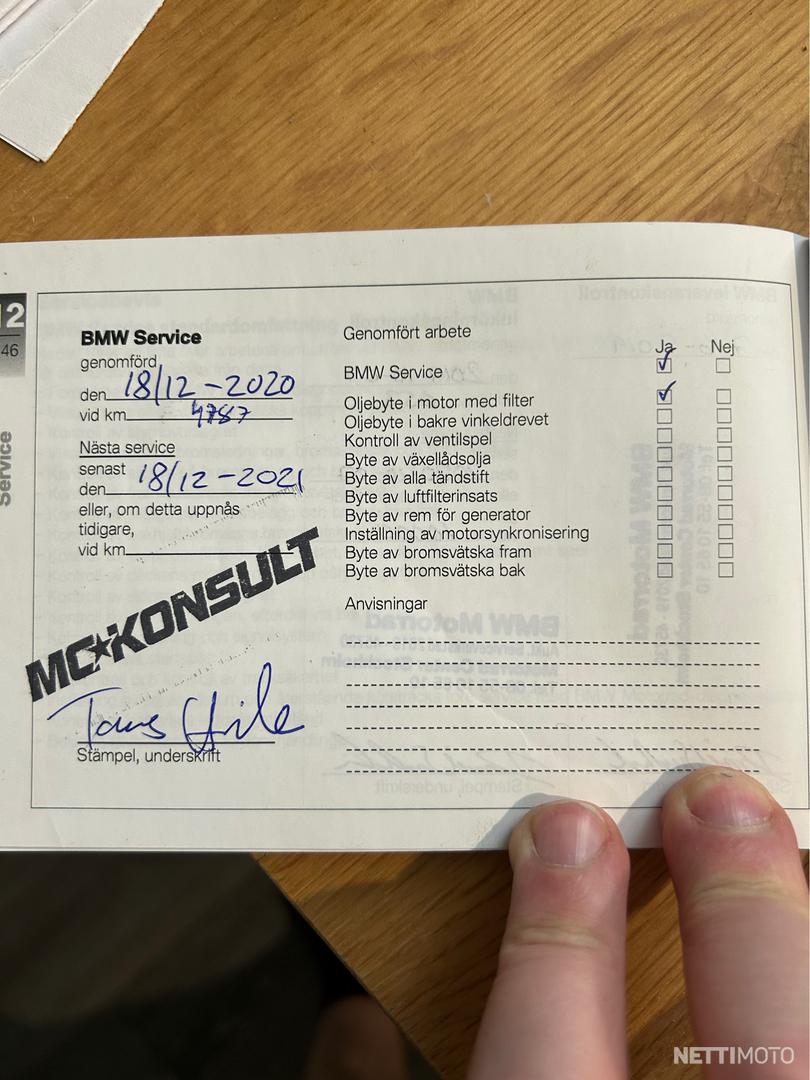 12
46
Service
BMW Service
genomförd
den 18/12 - 2020
vid km 4787
Nästa service
senast
den 18/12 - 2021
eller, om detta uppnås
tidigare,
vid km
MC★KONSULT
Stämpel, underskrift
Genomfört arbete
Ja Nej
BMW Service
Oljebyte i motor med filter
Oljebyte i bakre vinkeldrevet
Kontroll av ventilspel
Byte av växellådsolja
Byte av alla tändstift
Byte av luftfilterinsats
Byte av rem för generator
Inställning av motorsynkronisering
Byte av bromsvätska fram
Byte av bromsvätska bak
Anvisningar
NETTIMOTO